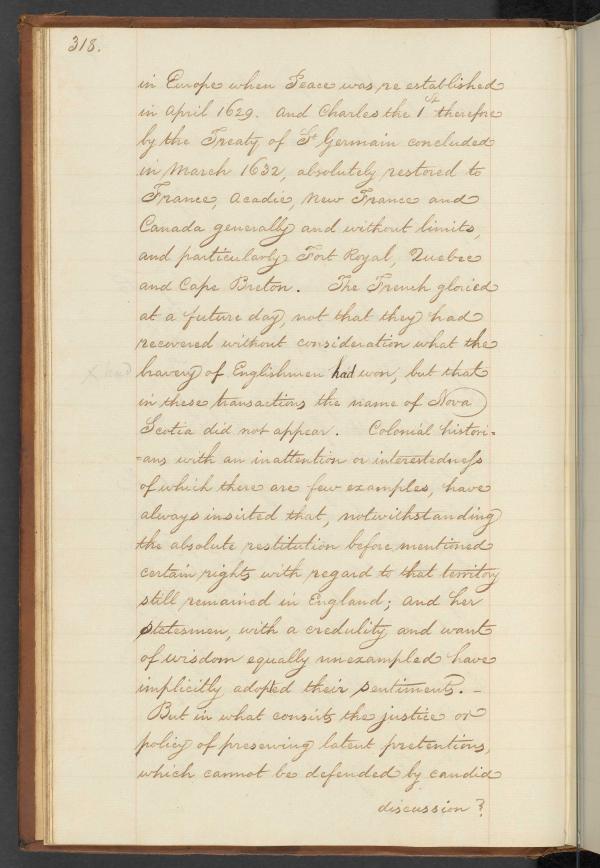 318.
in Europe when Peace was re established
in April 1629. And Charles the 1st therefore
by the Treaty of St Germain concluded
in March 1632, absolutely restored to
France, Acadie, New France and
Canada generally and without limits,
and particularly Port Royal, Quebec
and Cape Breton. The French gloried
at a future day, not that they had
recovered without consideration what the
x had bravery of Englishmen had won, but that
in these transactions the name of Nova
Scotia did not appear. Colonial histori-
-ans with an inattention or interestedness
of which there are few examples, have
always insisted that, notwithstanding
the absolute restitution before mentioned
certain rights with regard to that territory
still remained in England; and her
statesmen, with a credulity and want
of wisdom equally unexampled have
implicitly adopted their sentiments. -
But in what consists the justice or
policy of preserving latent pretentions,
which cannot be defended by candid
discussion?